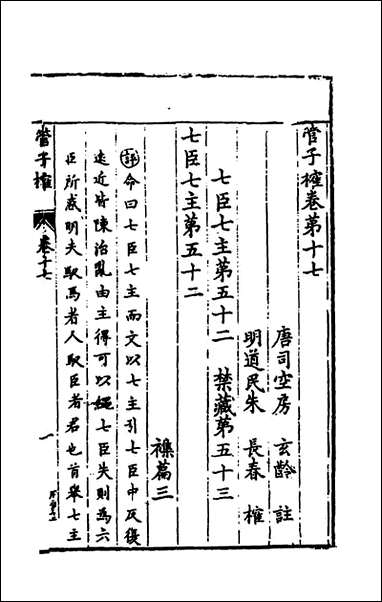 管子榷卷第十七
唐司空房　玄齡　註
明道民朱　長春　榷
七臣七主第五十二　禁藏第五十三
七臣七主第五十二
襍篇三
評命曰七臣七主而文以七主引七臣中反復
遠近皆陳治亂由主得可以繩七臣失則爲六
臣所惑明夫馭馬者人馭臣者君也首舉七主
管子榷
卷十七
一